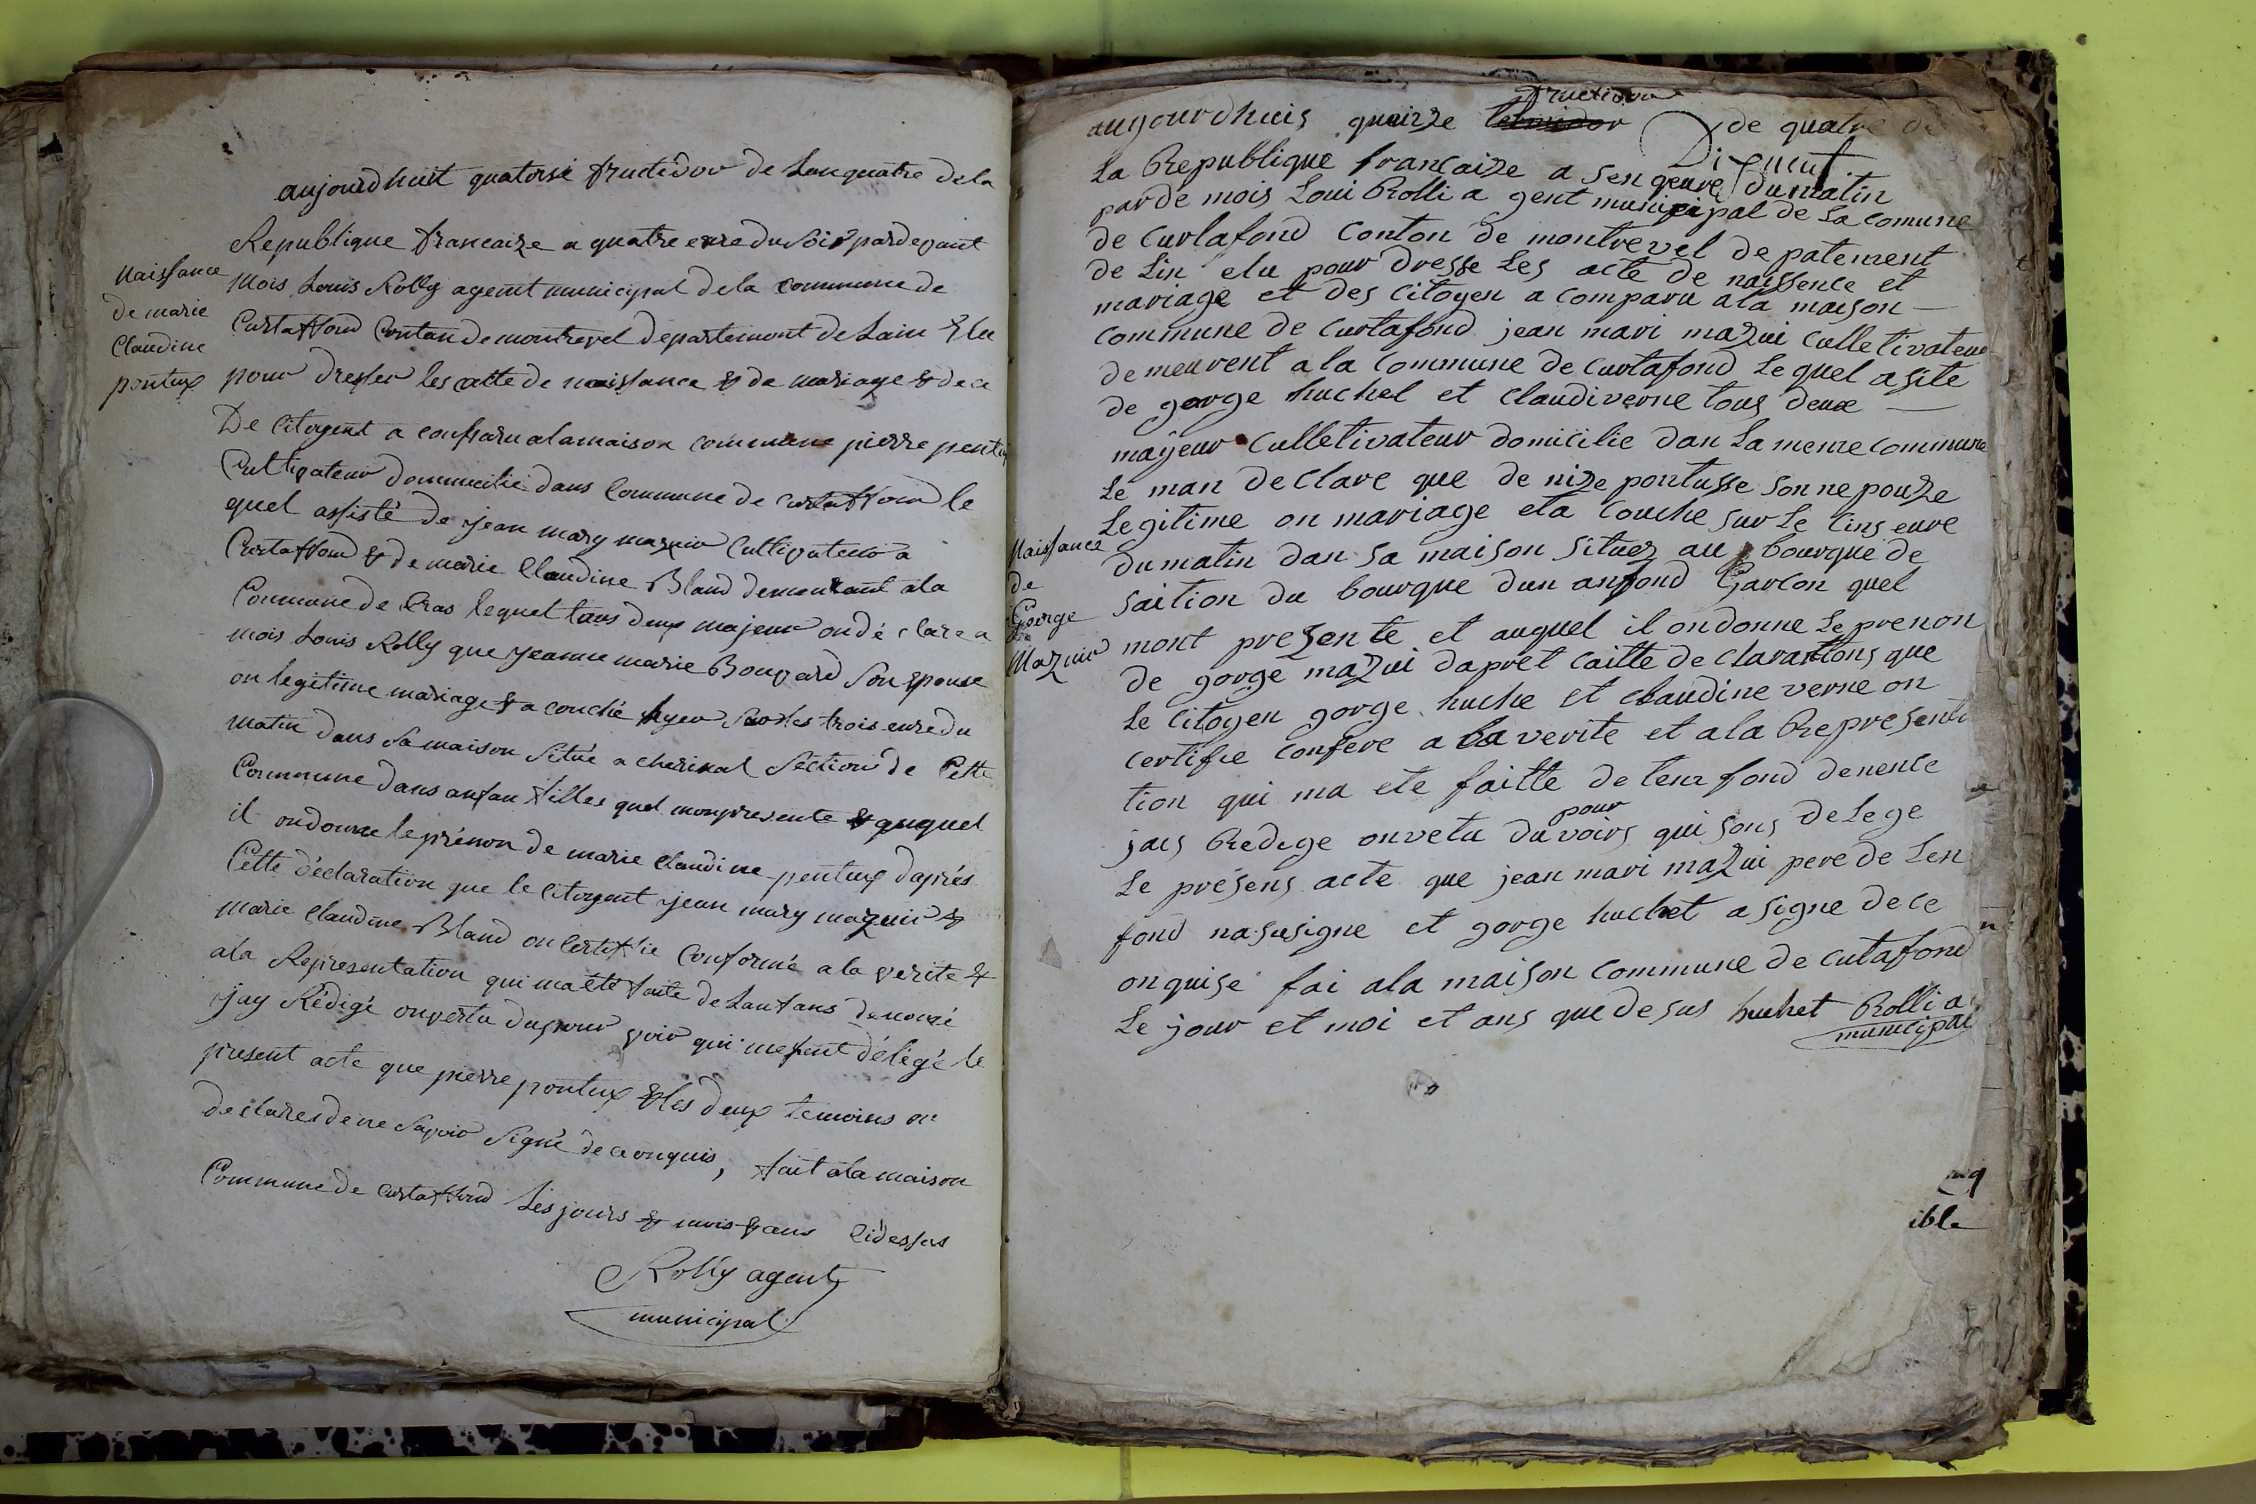 aujourd huit quatorsé fructidor de Lan quatre de la
Republique francaize a quatre eure du soir pardevant
Naissance
de marie
Claudine
pontux
Mois Louis Rolly agent municipal de la Commune de
Curtaffond Contan de montrevel departemont de Lain Elu
pour dresser les catte de naissance & de mariage & de ce
De Citoyent a comparu a la maison commune pierre pontux
Cultivateur dommicilié dans Commune de Curtaffond le
quel assisté de jean mary mazuir Cultivateur a
Curtaffond & de marie Claudine Bland demeurant a la
Commune de Cras lequel tous deux majeur on dé clare a
mois Louis Rolly que jeanne marie Bouvard son Epouse
on legitime mariage & a couché hyer sur les trois eure du
matin dans sa maison située a cherinal Section de Cette
Commune dans anfan filles quel mon presenté & auquel
il on donne le prénon de marie Claudine pontux d'aprés
Cette déclaration que le Citoyent jean mary mazuir &
marie Claudine Bland on Certiffie Conformé a la verite &
a la Representation qui ma été faite de Lanfans denoncé
jay Rédigé onvertu du pour voir qui me sont délégé le
present acte que pierre pontux & les deux temoins on
declares de ne savoir signé de ce onquis, fait a la maison
Commune de Curtaffond Les jours & mois & ans Cidessus
Rolly agent
municipal
fructidor
augourdhuis quinze de quatre de
Dix neuf
La Republique francaize a sen geure du matin
par de mois Loui Rolli a gent municipal de La comune
de Curtafond Conton de montrevel de patement
de Lin elu pour dresse Les acte de naissence et
mariage et des Citoyen a comparu a la maison
commune de Curtafond jean mari mazui Culletivateur
demeurent a la Commune de Curtafond Le quel asite
de gorge huchet et Claudiverne tous deux
majeur Culletivateur domicilie dan La meme commune
Le man declare que de nize pontusse son nepouze
Legitime on mariage eta couche sur Le cinq eure
Naissance
de
George
Mazuir
du matin dan sa maison situez au bourque de
saition du bourque dun anfond Garcon quel
mont prezente et auquel il on donne Le prenon
de gorge mazui dapret caitte de clarations que
Le Citoyen gorge huche et claudine verne on
certifie confere a La verite et a la Represent
tion qui ma ete faitte de Len fond denence
pour
jais Redige onvetu du voirs qui sons De Lege
Le présens acte que jean mari mazui pere de Len
fond na susigne et gorge huchet a signe de ce
onquise fai a la maison Commune de Cutafond
Le jour et moi et ans que desus huchet Rolli a
municipal
ible